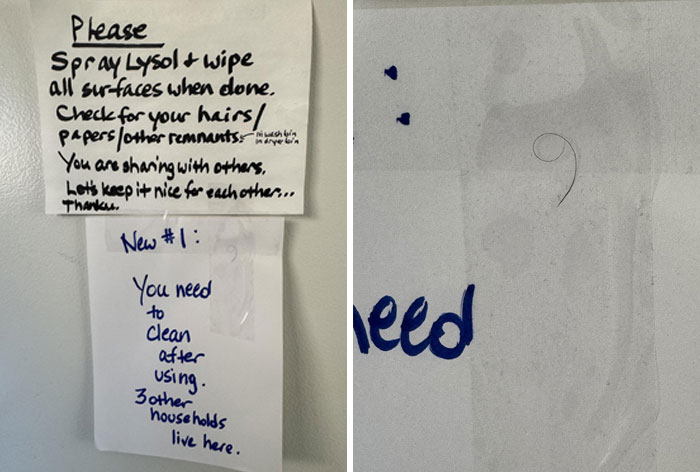 Please
Spray Lysol & wipe
all surfaces when done.
Check for your hairs/
papers/other remnants.
in wash bin
in dryer bin
You are sharing with others.
Let's keep it nice for each other...
Thanku.
New #1:
You need
to
clean
after
using.
3 other
households
live here.
:
need